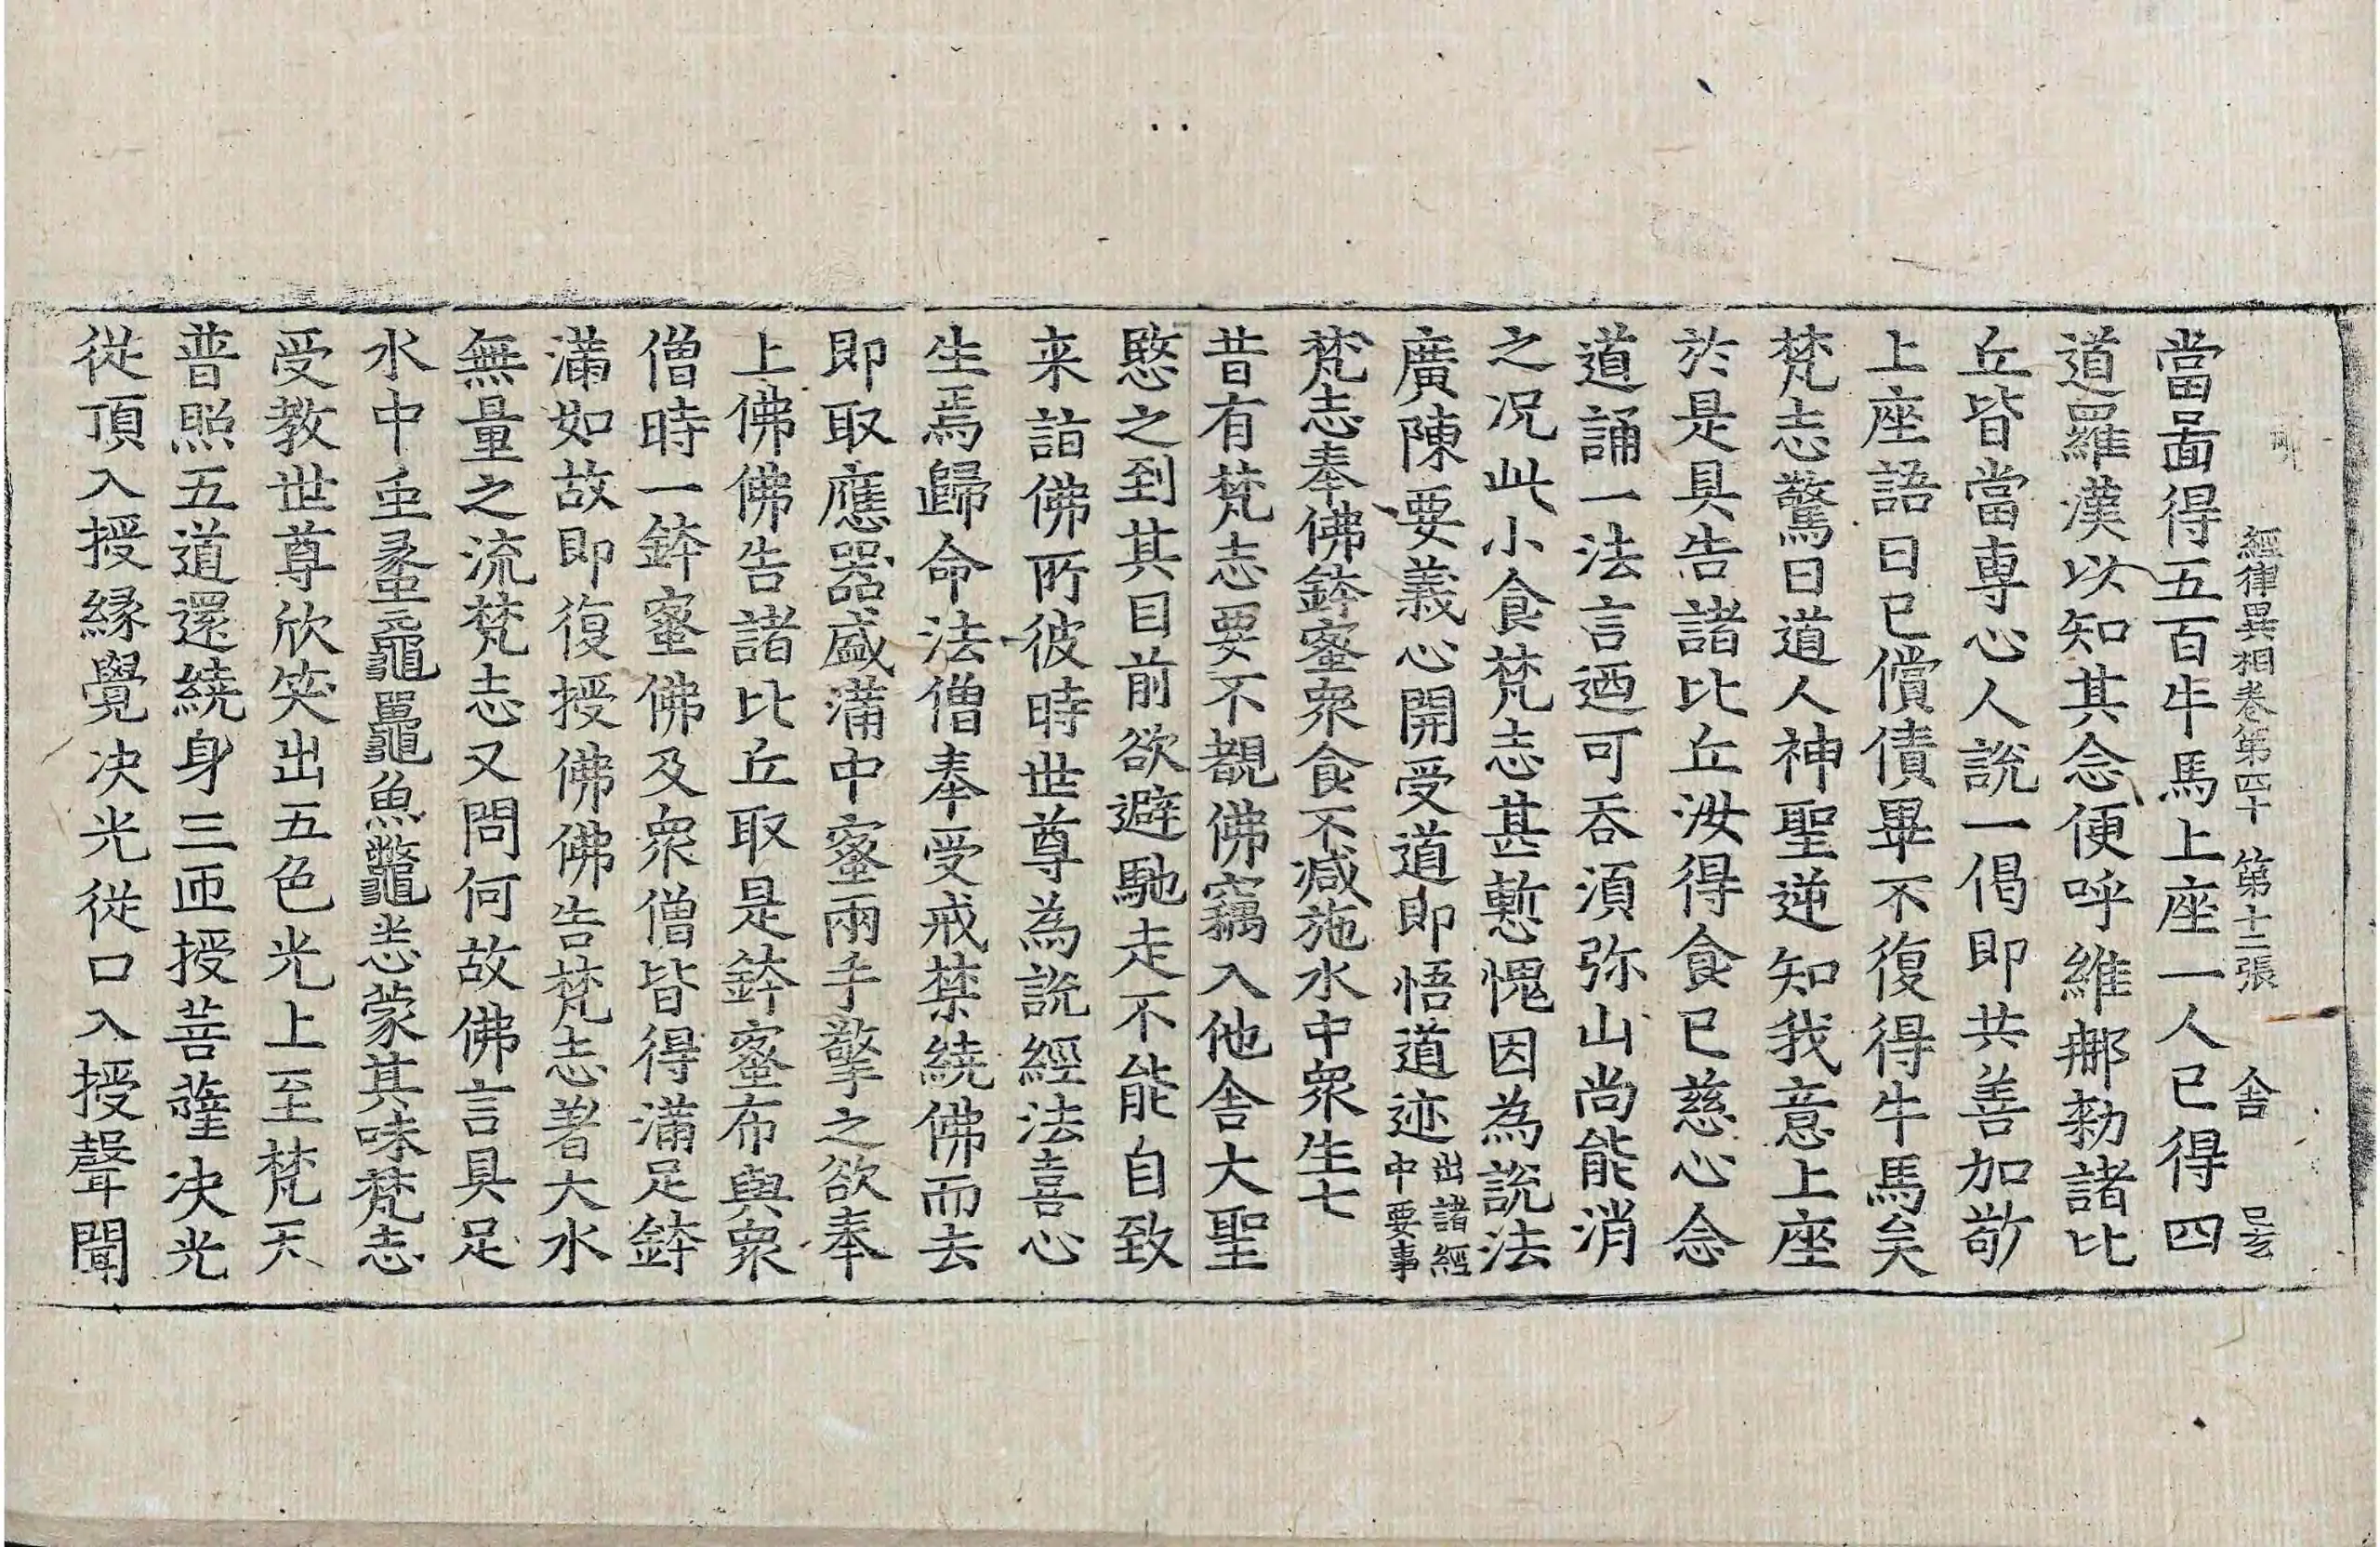 經律異相卷第四十 第十二張 舍 㠯玄
當啚得五百牛馬上座一人已得四
道羅漢以知其念便呼維那勑諸比
丘皆當專心人說一偈即共善加敬
上座語曰已償債畢不復得牛馬矣
梵志驚曰道人神聖逆知我意上座
於是具告諸比丘汝得食已慈心念
道誦一法言迺可吞湏弥山尚能消
之况此小食梵志甚慙愧因為說法
廣陳要義心開受道即悟道迹出諸經中要事
梵志奉佛鉢蜜衆食不減施水中衆生七
昔有梵志要不覩佛竊入他舍大聖
愍之到其目前欲避馳走不能自致
来詣佛所彼時世尊為說經法喜心
生焉歸命法僧奉受戒禁繞佛而去
即取應器盛蒲中蜜兩手擎之欲奉
上佛佛告諸比丘取是鉢蜜布與衆
僧時一鉢蜜佛及衆僧皆得滿足鉢
滿如故即復授佛佛告梵志著大水
無量之流梵志又問何故佛言具足
水中虫蟸黿鼉魚鼈悉蒙其味梵志
受教世尊欣笑出五色光上至梵天
普照五道還繞身三匝授菩薩决光
從頂入授緣覺决光從口入授聲聞